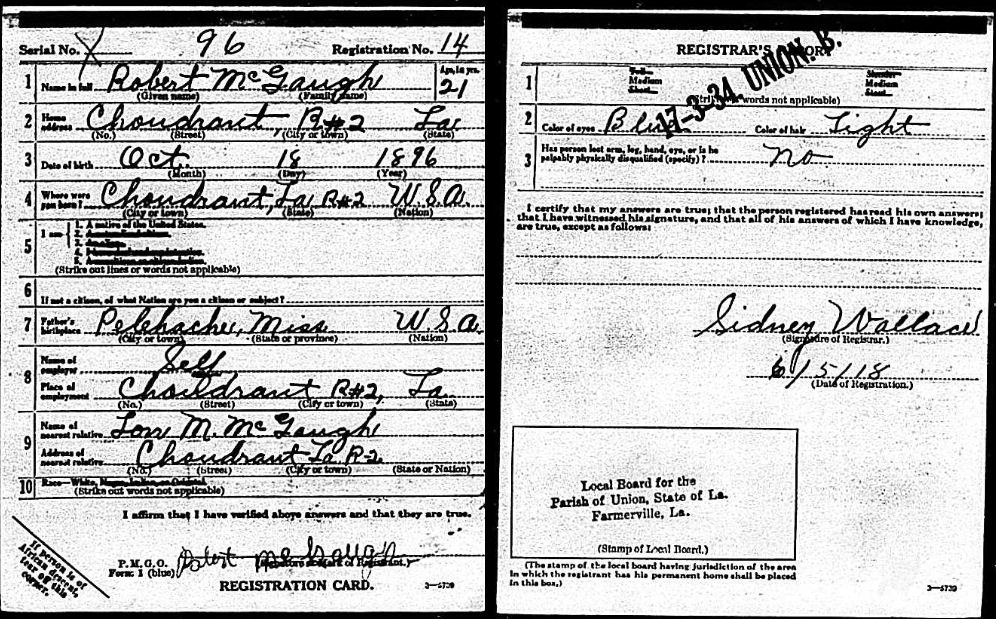 Serial No. X 96 Registration No. 14
1 Name in full Robert McGaugh Age, in yrs. 21
(Given name) (Family name)
2 Home address Choudrant, R#2 La
(No.) (Street) (City or town) (State)
3 Date of birth Oct. 18 1896
(Month) (Day) (Year)
4 Where were you born? Choudrant, La R#2 U.S.A.
(City or town) (State) (Nation)
5 I am 1. A native of the United States.
2.
3.
4.
5.
(Strike out lines or words not applicable)
6 If not a citizen, of what Nation are you a citizen or subject?
7 Father's birthplace Pelehachee, Miss U.S.A.
(City or town) (State or province) (Nation)
8 Name of employer Self
Place of employment Chouldrant R#2, La
(No.) (Street) (City or town) (State)
9 Name of nearest relative Lon M. McGaugh
Address of nearest relative Choudrant La R-2
(No.) (Street) (City or town) (State or Nation)
10 Race—White, Negro, Indian, or Oriental
(Strike out words not applicable)
I affirm that I have verified above answers and that they are true.
P.M.G.O. Form 1 (blue) Robert McGaugh
(Signature or Mark of Registrant.)
If person is of African descent, tear off this corner.
REGISTRATION CARD. 3—4739
REGISTRAR'S REPORT
17-3-34. UNION. B.
1 Tall Medium Short Slender Medium Stout
(Strike out words not applicable)
2 Color of eyes Blue Color of hair Light
3 Has person lost arm, leg, hand, eye, or is he palpably physically disqualified (specify)? no
I certify that my answers are true; that the person registered has read his own answers;
that I have witnessed his signature, and that all of his answers of which I have knowledge,
are true, except as follows:
Sidney Wallace
(Signature of Registrar.)
6/5/18
(Date of Registration.)
Local Board for the
Parish of Union, State of La.
Farmerville, La.
(Stamp of Local Board.)
(The stamp of the local board having jurisdiction of the area
in which the registrant has his permanent home shall be placed
in this box.)
3—4739